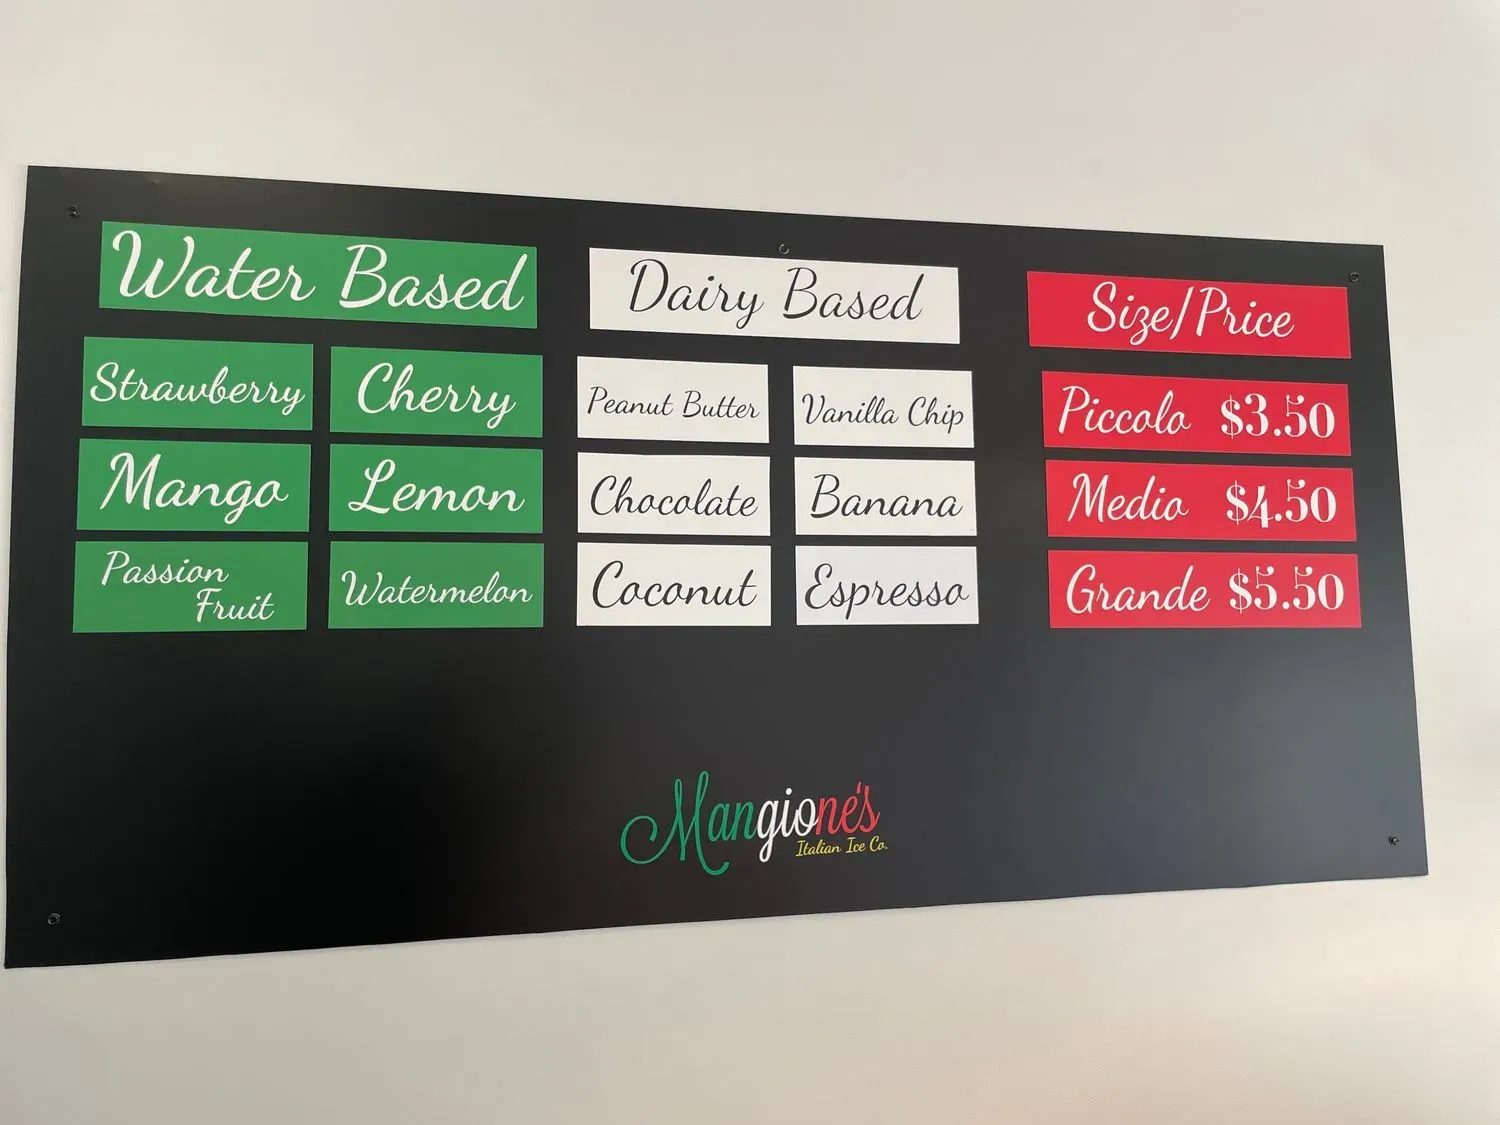 Water Based
Strawberry
Cherry
Mango
Lemon
Passion
Fruit
Watermelon
Dairy Based
Peanut Butter
Vanilla Chip
Chocolate
Banana
Coconut
Espresso
Size/Price
Piccolo $3.50
Medio $4.50
Grande $5.50
Mangione's
Italian Ice Co.